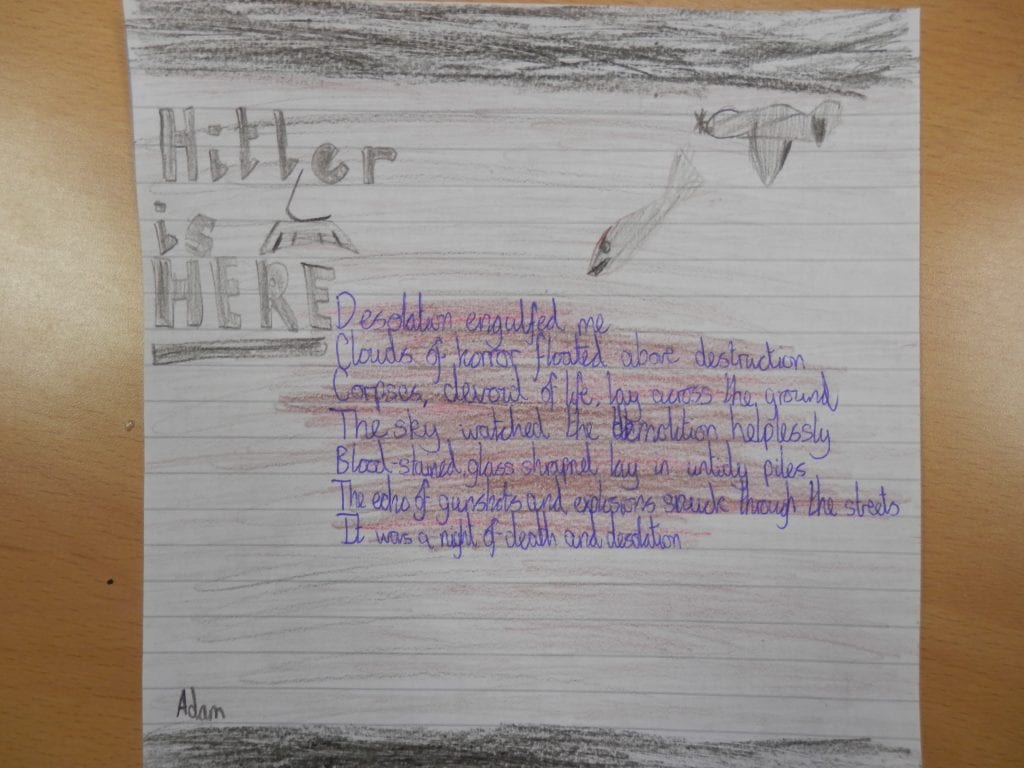 Hitler
is
HERE
Desolation engulfed me
Clouds of horror floated above destruction
Corpses, devoid of life, lay across the ground
The sky watched the demolition helplessly
Blood-stained glass shrapnel lay in untidy piles
The echo of gunshots and explosions snuck through the streets
It was a night of death and desolation
Adam